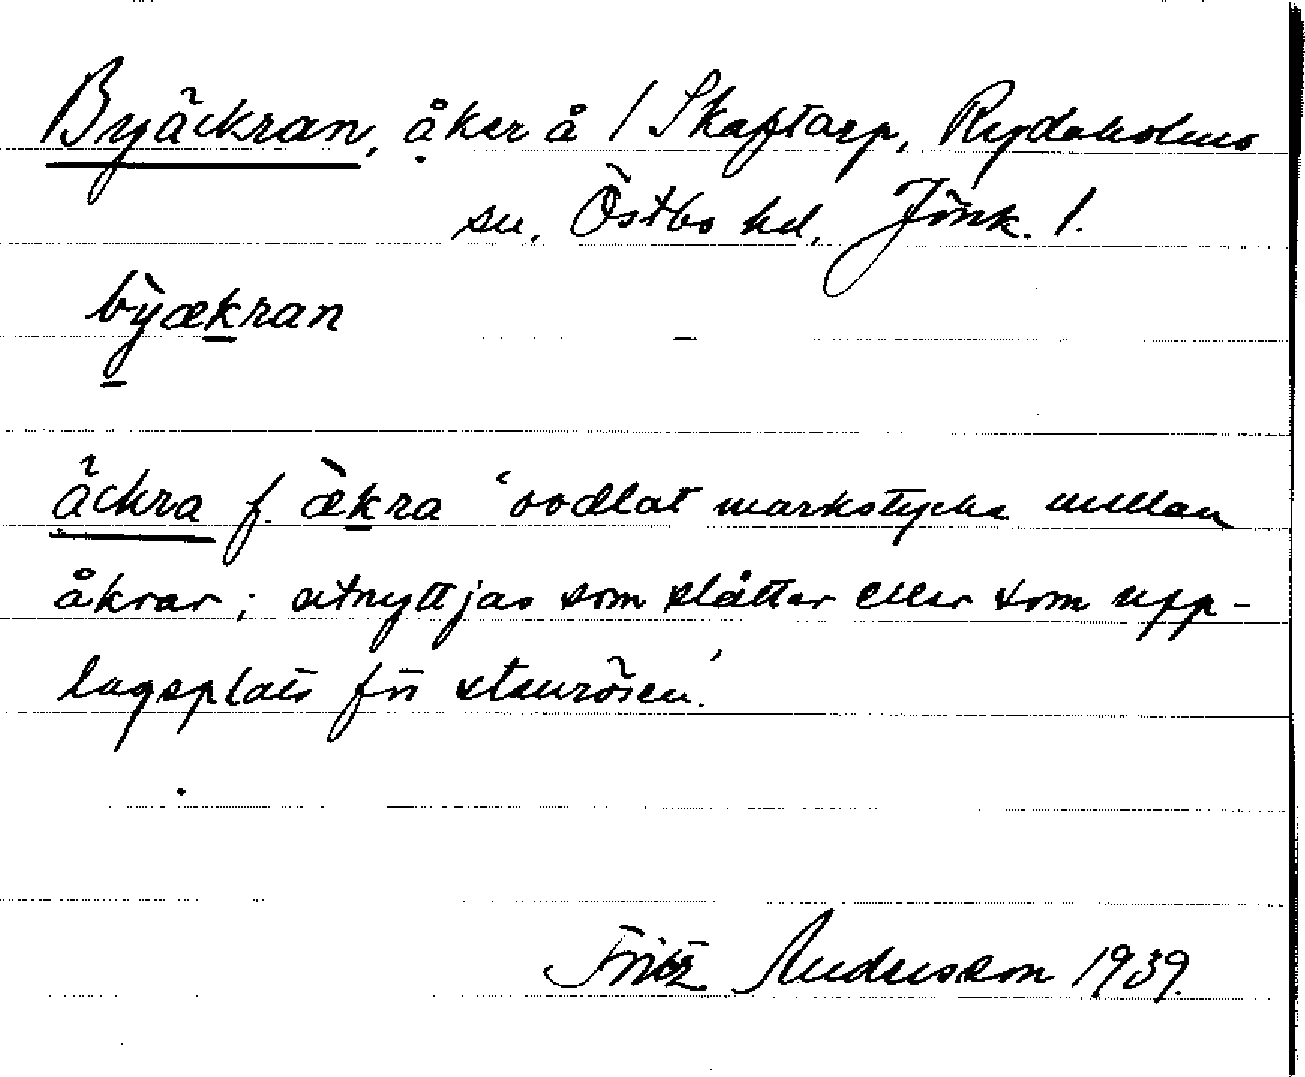 Byäckran, åker å 1 Skaftarp, Rydaholms
sn. Östbo hd, Jönk. l.
bỳækran
äckra f. æ̀kra 'oodlat markstycke mellan
åkrar; utnyttjas som slåtter eller som upp-
lagsplats för stenrösen.'
Fritz Andersson 1939.